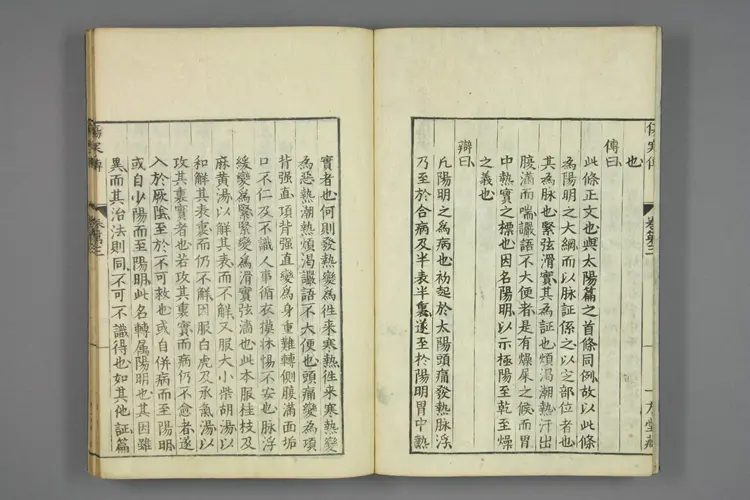 也
傳曰
此條正文也與太陽篇之首條同例故以此條
為陽明之大綱而以脉証係之以定部位者也
其為脉也緊弦滑實其為証也煩渴潮熱汗出
腹滿而喘讝語不大便者是有燥屎之候而胃
中熱實之標也因名陽明以示極陽至乾至燥
之義也
辯曰
凡陽明之為病也初起於太陽頭痛發熱脉浮
乃至於合病及半表半裏遂至於陽明胃中熱
實者也何則發熱變為徃来寒熱徃来寒熱變
為惡熱潮熱煩渴讝語不大便也頭痛變為項
背强直項背强直變為身重難轉側腹滿面垢
口不仁及不識人事循衣摸床惕不安也脉浮
緩變為緊緊變為滑實弦濇也此本服桂枝及
麻黄湯以解其表而不解又服大小柴胡湯以
和解其表裏而仍不解因服白虎及承氣湯以
攻其裏實者也若攻其裏實而病仍不愈者遂
入於厥陰至於不可救也或自併病而至陽明
或自少陽而至陽明此名轉属陽明也其因雖
異而其治法則同不可不識得也如其他証篇
傷寒傳
卷第三